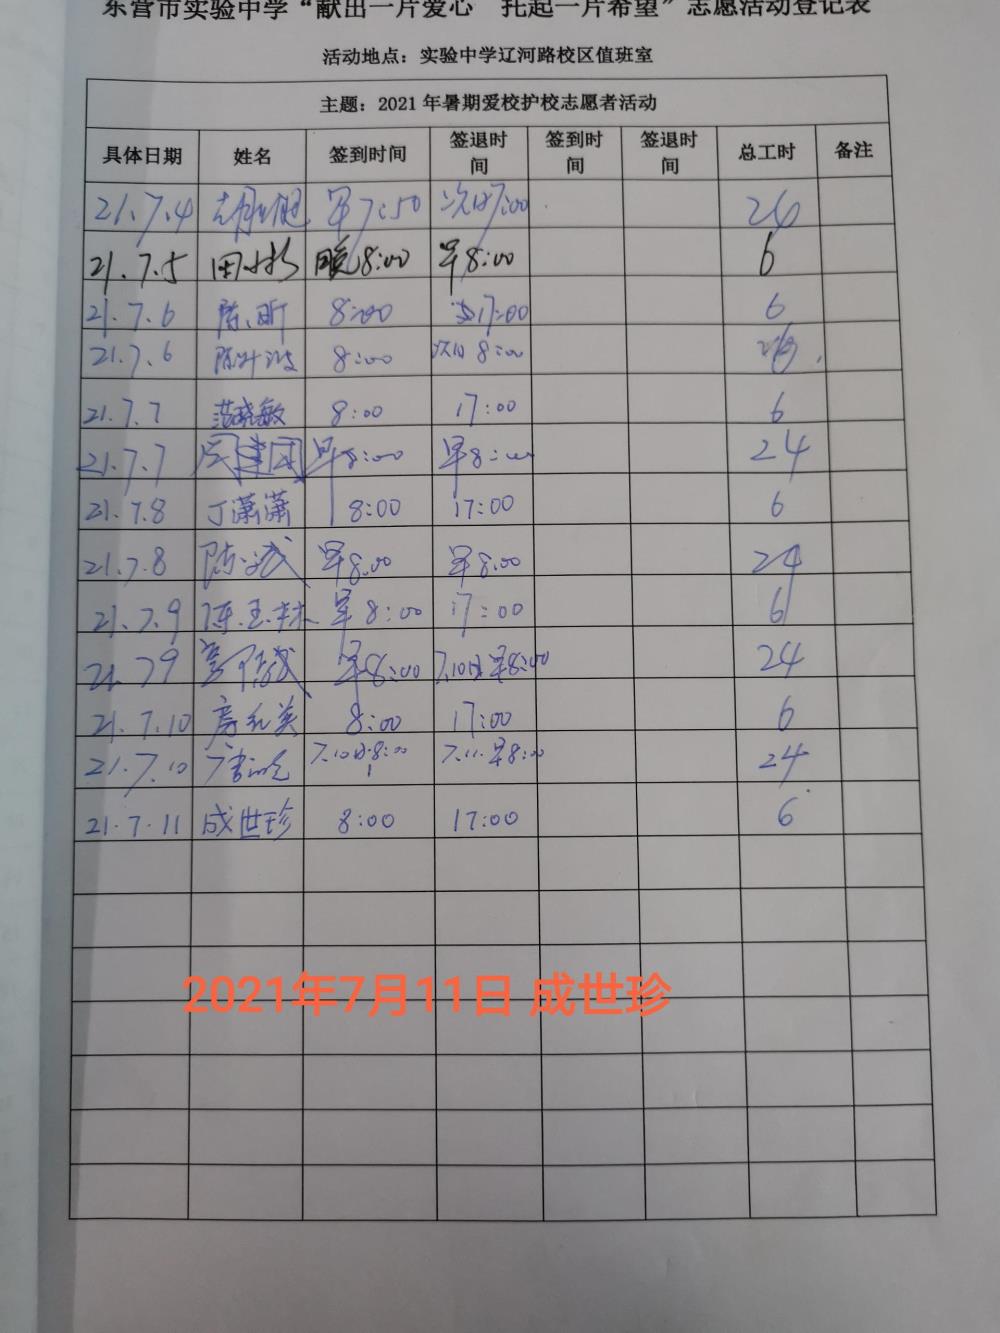 东营市实验中学“献出一片爱心 托起一片希望”志愿活动登记表
活动地点：实验中学辽河路校区值班室
主题：2021年暑期爱校护校志愿者活动
具体日期 姓名 签到时间 签退时间 签到时间 签退时间 总工时 备注
21.7.4 早7:50 次日7:00 24
21.7.5 晚8:00 早8:00 6
21.7.6 陈昕 8:00 17:00 6
21.7.6 8:00 次日8:00
21.7.7 范晓敏 8:00 17:00 6
21.7.7 周建国 早8:00 早8:00 24
21.7.8 丁潇潇 8:00 17:00 6
21.7.8 早8:00 早8:00 24
21.7.9 陈玉林 早8:00 17:00 6
21.7.9 早8:00 7.10日早8:00 24
21.7.10 房红英 8:00 17:00 6
21.7.10 7.10日8:00 7.11.早8:00 24
21.7.11 成世珍 8:00 17:00 6
2021年7月11日 成世珍